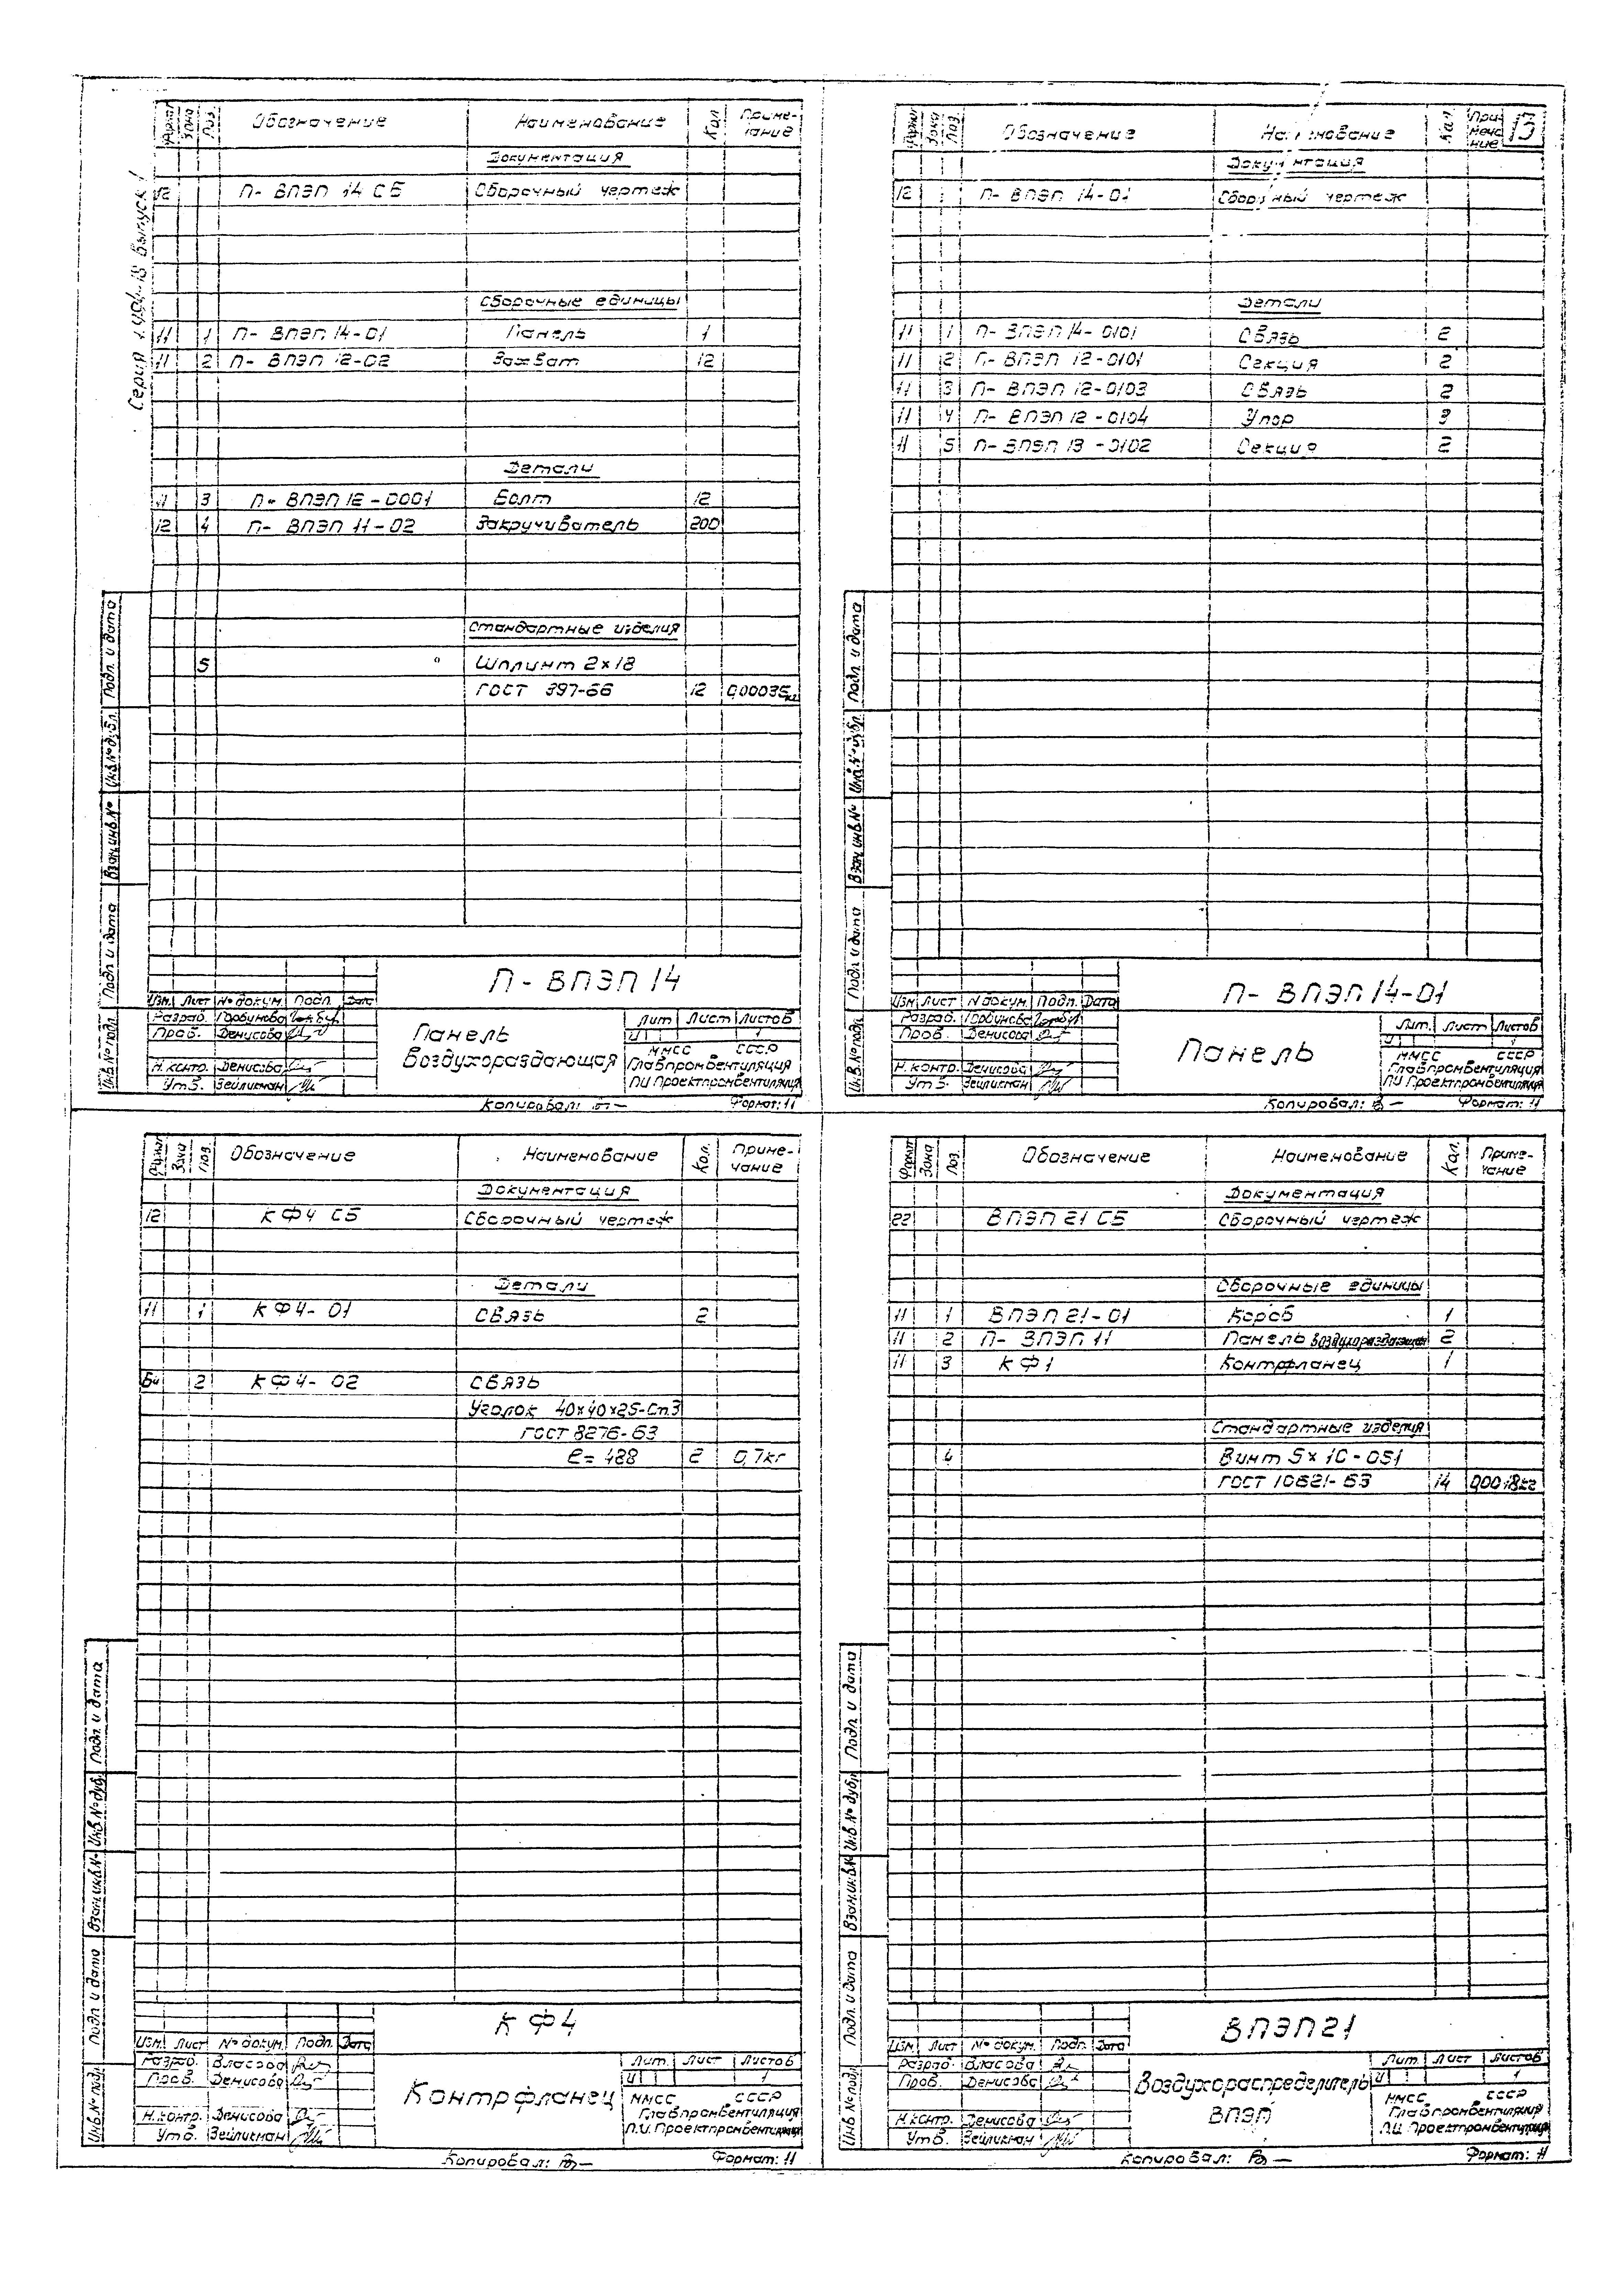 Серия 1.494-18 Выпуск 1
Формат Зона Поз. Обозначение Наименование Кол Приме-
чание
Документация
12 П- ВПЭП 14 СБ Сборочный чертеж
Сборочные единицы
11 1 П- ВПЭП 14-01 Панель 1
11 2 П- ВПЭП 12-02 Захват 12
Детали
11 3 П- ВПЭП 12-0001 Болт 12
12 4 П- ВПЭП 11-02 Закручиватель 200
Стандартные изделия
5 Шплинт 2×18
ГОСТ 397-66 12 0,00035кг
Подп. и дата
Инв.№ дубл.
Взам.инв.№
Подп. и дата
Инв.№ подл.
П- ВПЭП 14
Изм. Лист № докум. Подп. Дата
Разраб. Горбунова
Пров. Денисова
Н.контр. Денисова
Утв. Зейликман
Панель
Воздухораздающая
Лит Лист Листов
И 1
ММСС СССР
Главпромвентиляция
ПИ Проектпромвентиляция
Копировал: Формат: 11
Формат Зона Поз. Обозначение Наименование Кол. При-
меча
ние
13
Документация
12 П- ВПЭП 14-01 Сборочный чертеж
Детали
11 1 П- ВПЭП 14-0101 Связь 2
11 2 П- ВПЭП 12-0101 Секция 2
11 3 П- ВПЭП 12-0103 Связь 2
11 4 П- ВПЭП 12-0104 Упор 3
11 5 П- ВПЭП 13-0102 Секция 2
Подп. и дата
Инв.№ дубл.
Взам.инв.№
Подп. и дата
Инв.№ подл.
П- ВПЭП 14-01
Изм Лист № докум. Подп. Дата
Разраб. Горбунова
Пров. Денисова
Н.контр. Денисова
Утв. Зейликман
Панель
Лит. Лист Листов
И 1
ММСС СССР
Главпромвентиляция
ПИ Проектпромвентиляция
Копировал: Формат: 11
Формат Зона Поз. Обозначение Наименование Кол. Приме-
чание
Документация
12 КФ4 СБ Сборочный чертеж
Детали
11 1 КФ4-01 Связь 2
Бч 2 КФ4-02 Связь
Уголок 40×40×25-Ст.3
ГОСТ 8276-63
ℓ= 488 2 0,7кг
Подп. и дата
Инв № дубл.
Взам.инв.№
Подп. и дата
Инв.№ подл.
КФ4
Изм Лист № докум. Подп. Дата
Разраб. Власова
Пров. Денисова
Н.контр. Денисова
Утв. Зейликман
Контрфланец
Лит. Лист Листов
И 1
ММСС СССР
Главпромвентиляция
П.И. Проектпромвентиляция
Копировал: Формат: 11
Формат Зона Поз. Обозначение Наименование Кол. Приме-
чание
Документация
22 ВПЭП 21 СБ Сборочный чертеж
Сборочные единицы
11 1 ВПЭП 21-01 Короб 1
11 2 П- ВПЭП 11 Панель воздухораздающая 2
11 3 КФ1 Контрфланец 1
Стандартные изделия
4 Винт 5×10-051
ГОСТ 10621-63 14 0,0018кг
Подп. и дата
Инв № дубл.
Взам.инв.№
Подп. и дата
Инв № подл.
ВПЭП21
Изм Лист № докум. Подп. Дата
Разраб Власова
Пров. Денисова
Н.контр. Денисова
Утв. Зейликман
Воздухораспределитель
ВПЭП
Лит. Лист Листов
И 1
ММСС СССР
Главпромвентиляция
П.И. Проектпромвентиляция
Копировал: Формат: 11